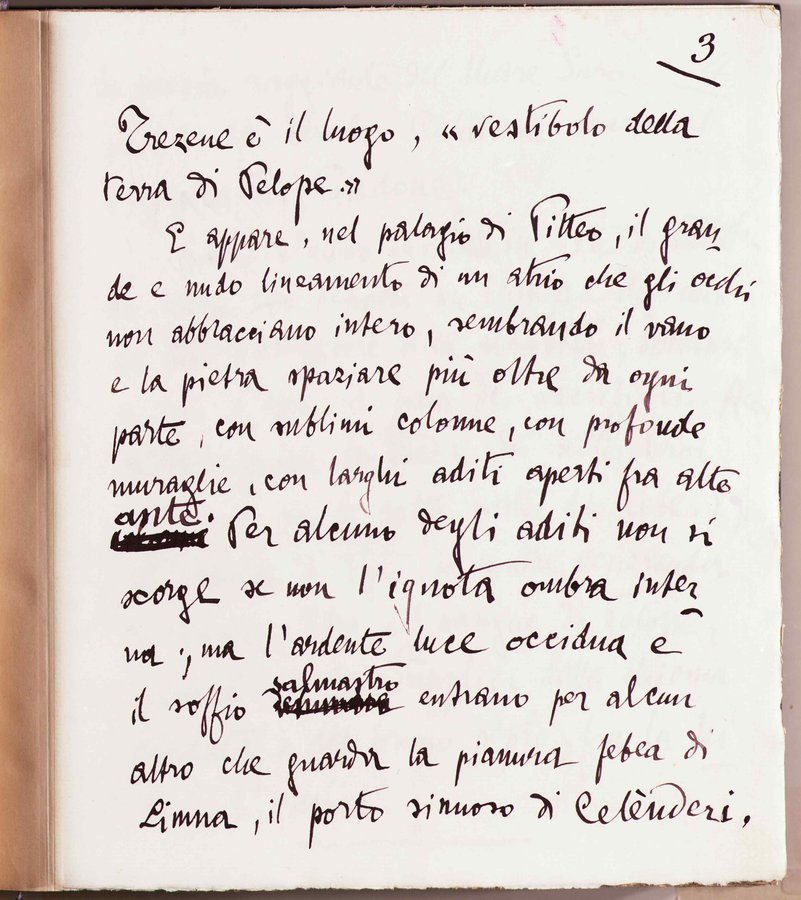 3
Trezene è il luogo, « vestibolo della
terra di Pelope. »
E appare, nel palagio di Pitteo, il gran
de e nudo lineamento di un atrio che gli occhi
non abbracciano intero, sembrando il vano
e la pietra spaziare più oltre da ogni
parte, con sublimi colonne, con profonde
muraglie, con larghi aditi aperti fra alte
ante. Per alcuno degli aditi non si
scorge se non l'ignota ombra inter
na ; ma l'ardente luce occidua e
il soffio salmastro entrano per alcun
altro che guarda la pianura febea di
Limna, il porto sinuoso di Celènderi.